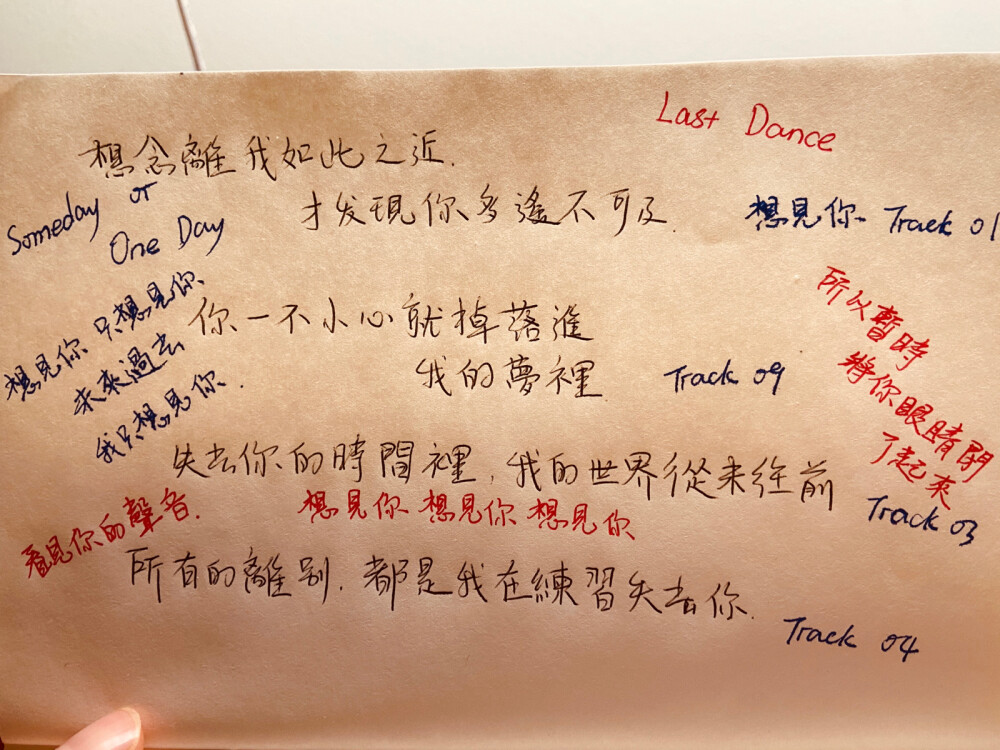 Last Dance
想念離我如此之近.
Someday or
One Day
才发現你多遙不可及.
想見你 Track 01
想見你 只想見你
未來過去
我只想見你.
你一不小心就掉落進
我的夢裡
Track 09
所以暫時
將你眼睛閉
了起來
Track 03
失去你的時間裡,我的世界從未往前
看見你的聲音.
想見你 想見你 想見你
所有的離别.都是我在練習失去你.
Track 04